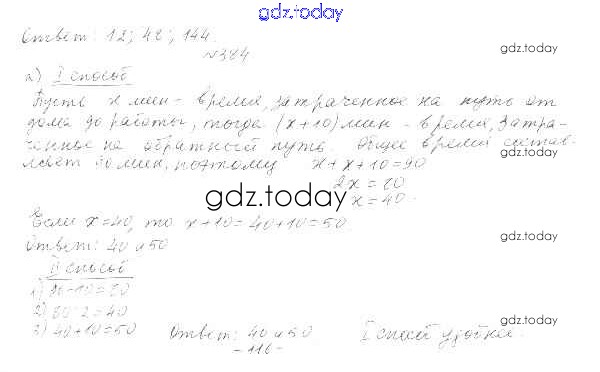 gdz.today
Ответ: 12; 48; 144.
gdz.today
№384
а) I способ
Пусть x мин - время, затраченное на путь от
дома до работы, тогда (x+10) мин - время, затра-
ченное на обратный путь. Общее время состав-
ляет 90 мин, поэтому x+x+10=90
gdz.today
2x=80
x=40.
gdz.today
Если x=40, то x+10=40+10=50
gdz.today
Ответ: 40 и 50
II способ
1) 90-10=80
2) 80:2=40
3) 40+10=50
Ответ: 40 и 50.
I способ удобнее.
gdz.today
-116-
gdz.today